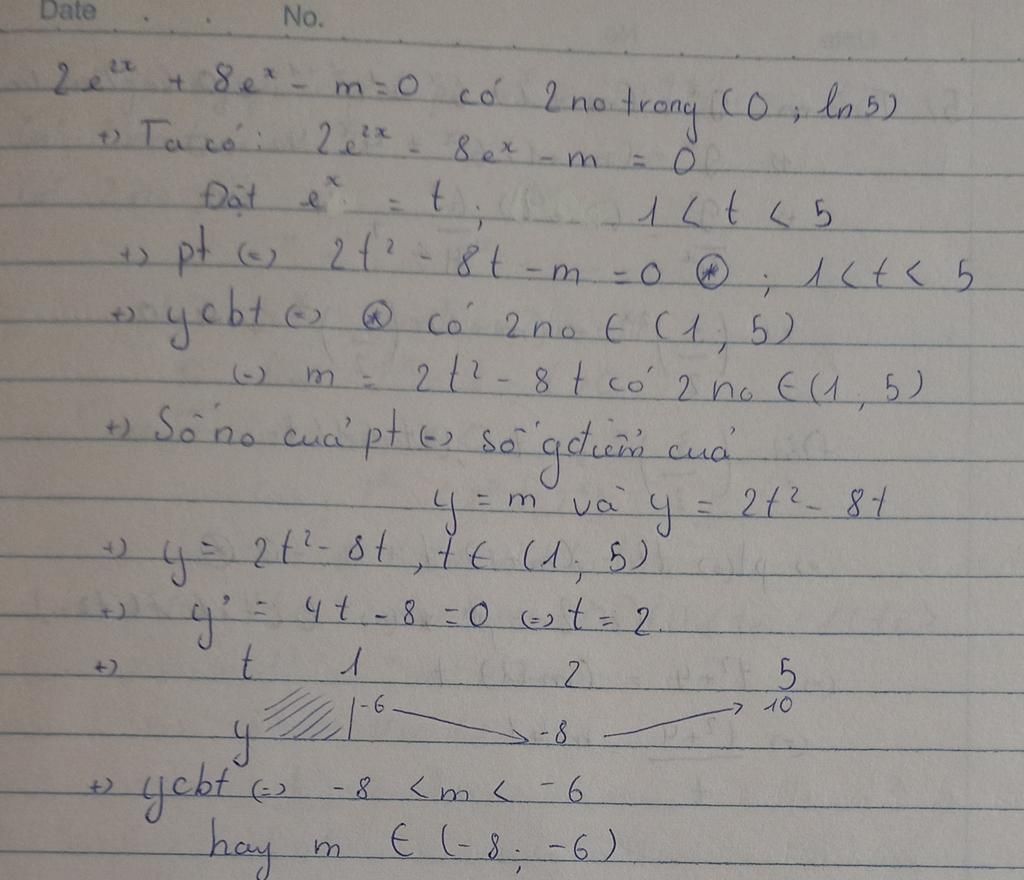 Date . . No.
2e²ˣ + 8eˣ - m = 0 có 2 no trong (0 ; ln5)
+) Ta có : 2e²ˣ - 8eˣ - m = 0
Đặt eˣ = t ; 1 < t < 5
+) pt (=) 2t² - 8t - m = 0 ⊛ ; 1 < t < 5
+) ycbt (=) ⊛ có 2 no ∈ (1 ; 5)
(=) m = 2t² - 8t có 2 no ∈ (1 ; 5)
+) Số no của pt (=) số gđiểm của
y = m và y = 2t² - 8t
+) y = 2t² - 8t , t ∈ (1 ; 5)
+) y' = 4t - 8 = 0 (=) t = 2
+) t 1 2 5
y -6 -8 10
+) ycbt (=) -8 < m < -6
hay m ∈ (-8 ; -6)